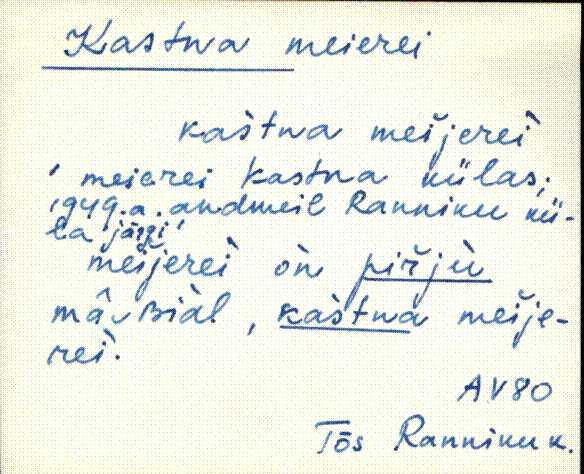 Kastna meierei
kas̀tna meišjerei̇̀
' meierei Kastna külas;
1949.a. andmeil Ranniku kü-
la järgi'
meišjerei̇̀ òn piřjù
mâ͜v ʙiàl, kàstna meišje-
rei̇̀.
AV80
Tõs Ranniku k.